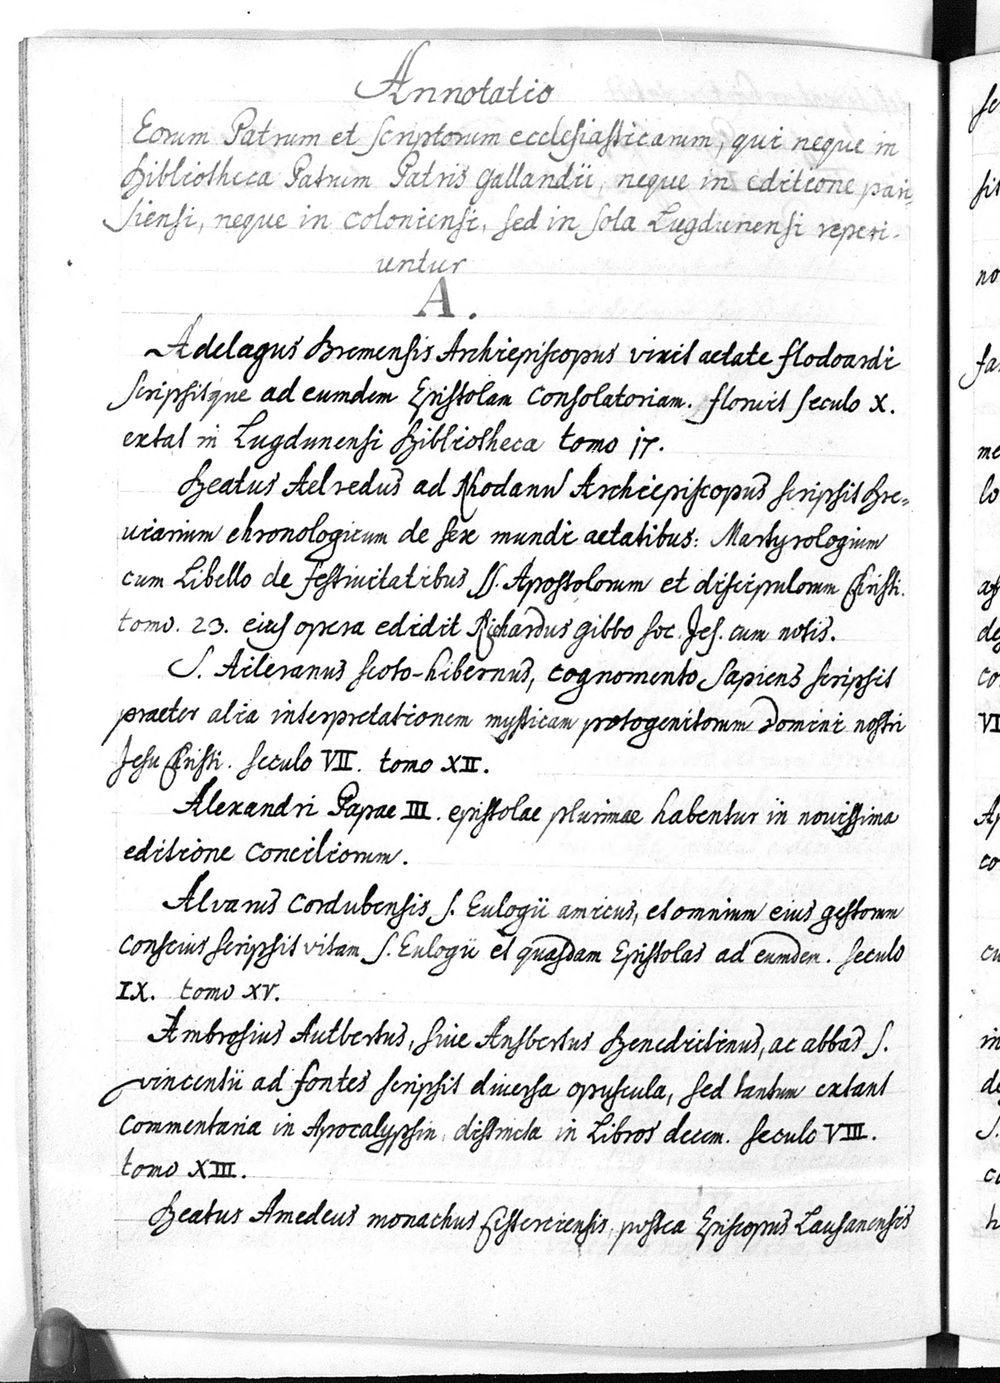 Annotatio
Eorum Patrum et scriptorum ecclesiasticarum, qui neque in
Bibliotheca Patrum Patris Gallandii, neque in editione pari-
siensi, neque in coloniensi, sed in sola Lugdunensi reperi-
untur
A.
Adelagus Bremensis Archiepiscopus vixit aetate flodoardi
scripsitque ad eumdem Epistolam Consolatoriam. floruit seculo X.
extat in Lugdunensi Bibliotheca tomo 17.
Beatus Aelredus ad Rhodanum Archiepiscopus scripsit Bre-
uiarium chronologicum de sex mundi aetatibus: Martyrologium
cum Libello de festiuitatibus SS. Apostolorum et discipulorum Christi.
tomo. 23. eius opera edidit Richardus Gibbo soc. Jes. cum notis.
S. Aileranus scoto-hibernus, cognomento Sapiens scripsit
praeter alia interpretationem mysticam protogenitorum Domini nostri
Jesu Christi. seculo VII. tomo XII.
Alexandri Papae III. epistolae plurimae habentur in nouissima
editione Conciliorum.
Alvarus Cordubensis S. Eulogii amicus, et omnium eius gestorum
conscius scripsit vitam S. Eulogii et quasdam Epistolas ad eumdem. seculo
IX. tomo XV.
Ambrosius Autbertus, siue Ansbertus Benedictinus, ac abbas S.
vincentii ad fontes scripsit diuersa opuscula, sed tantum extant
commentaria in Apocalypsin, distincta in Libros decem. seculo VIII.
tomo XIII.
Beatus Amedeus monachus Cisterciensis, postea Episcopus Lausanensis